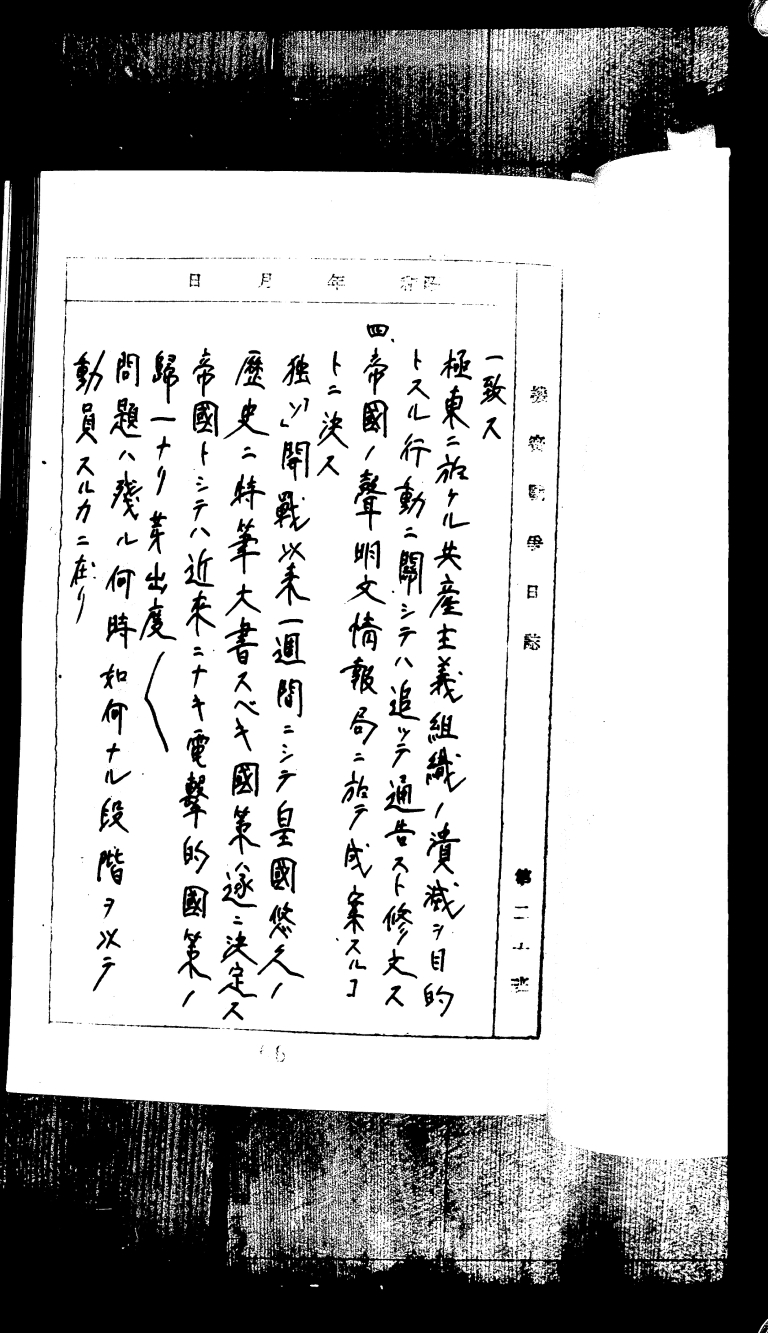 機密戰爭日誌 第二十班
昭和 年 月 日
一致ス
極東ニ於ケル共産主義組織ノ潰滅ヲ目的
トスル行動ニ關シテハ追ッテ通告スト修文ス
四、帝國ノ聲明文情報局ニ於テ成案スルコ
トニ決ス
獨「ソ」開戰以来一週間ニシテ皇國悠久ノ
歴史ニ特筆大書スベキ國策遂ニ決定ス
帝國トシテハ近来ニナキ電擊的國策ノ
歸一ナリ芽出度〱
問題ハ殘ル何時如何ナル段階ヲ以テ
動員スルカニ在リ